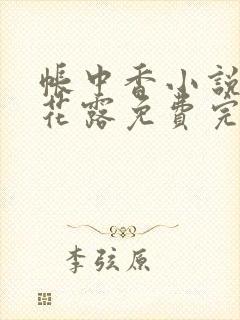 帳中香小說
花露免費完
李弦原